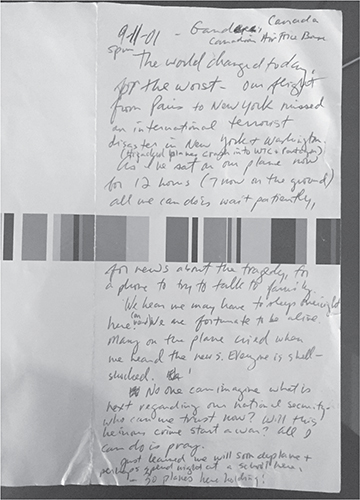 9-11-01 - Gander, Canada
5pm Canadian Air Force Base
The world changed today,
for the worst - our flight
from Paris to New York missed
an international terrorist
disaster in New York & Washington.
(Hijacked planes crash into WTC & Pentagon)
As we sat on our plane now
for 12 hours (7 now on the ground)
all we can do is wait patiently,
for news about the tragedy, for
a phone to try to talk to family.
We hear we may have to sleep overnight
here. We are fortunate to be alive.
Many on the plane cried when
we heard the news. Everyone is shell-
shocked.
No one can imagine what is
next regarding our national security.
Who can we trust now? Will this
heinous crime start a war? All I
can do is pray.
Just learned we will soon deplane &
perhaps spend night at a school here,
- 50 planes here holding!